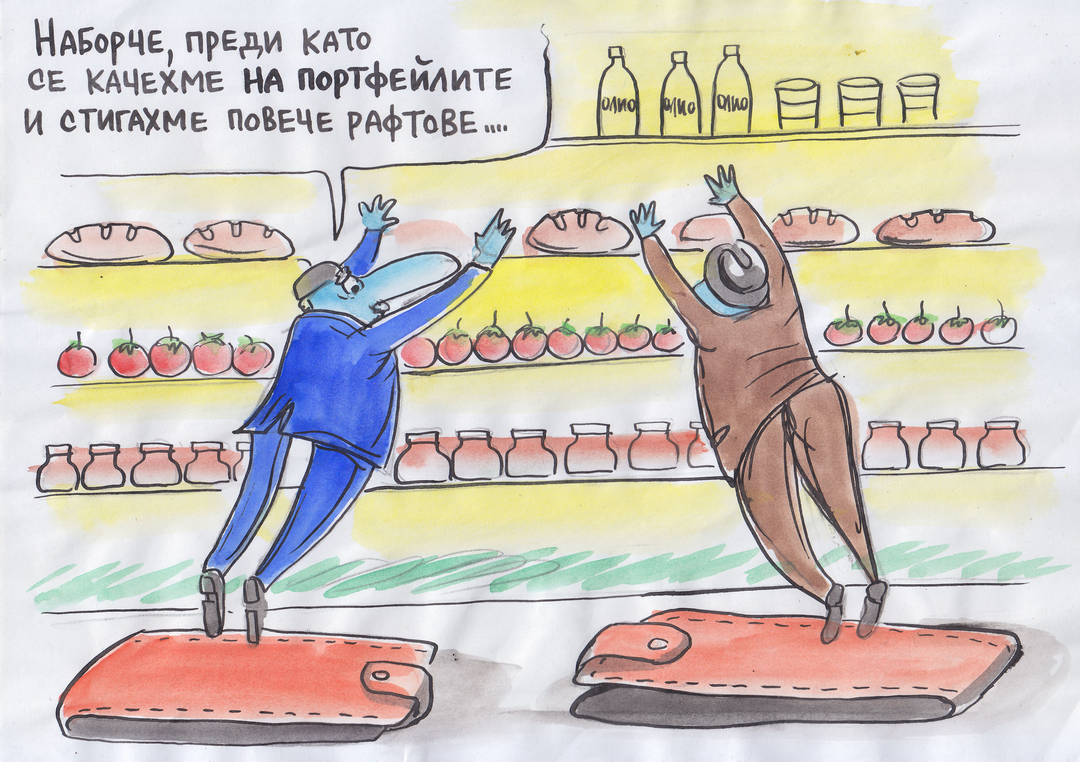 НАБОРЧЕ, ПРЕДИ КАТО
СЕ КАЧЕХМЕ НА ПОРТФЕЙЛИТЕ
И СТИГАХМЕ ПОВЕЧЕ РАФТОВЕ....
ОЛИО ОЛИО ОЛИО